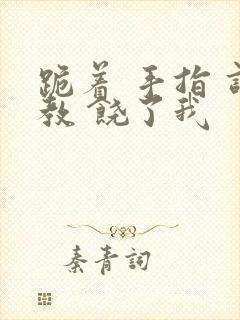 跪着 手指
教 饶了我
秦青詞